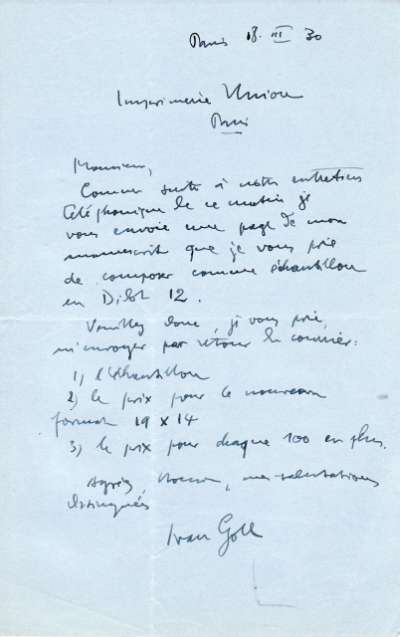 Paris 18. III 30
Imprimerie Union
Paris
Monsieur,
Comme suite à notre entretien
téléphonique de ce matin je
vous envoie une page de mon
manuscrit que je vous prie
de composer comme échantillon
en Didot 12.
Veuillez donc, je vous prie,
m'envoyer par retour du courrier:
1) l'échantillon
2) le prix pour ce nouveau
format 19 x 14
3) le prix pour chaque 100 en plus.
Agréez, Monsieur, mes salutations
distinguées
Ivan Goll